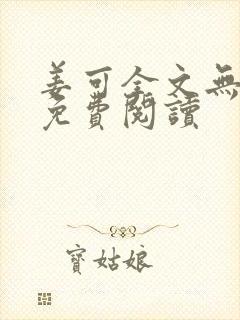 姜可全文無
免費閱讀
寶姑娘